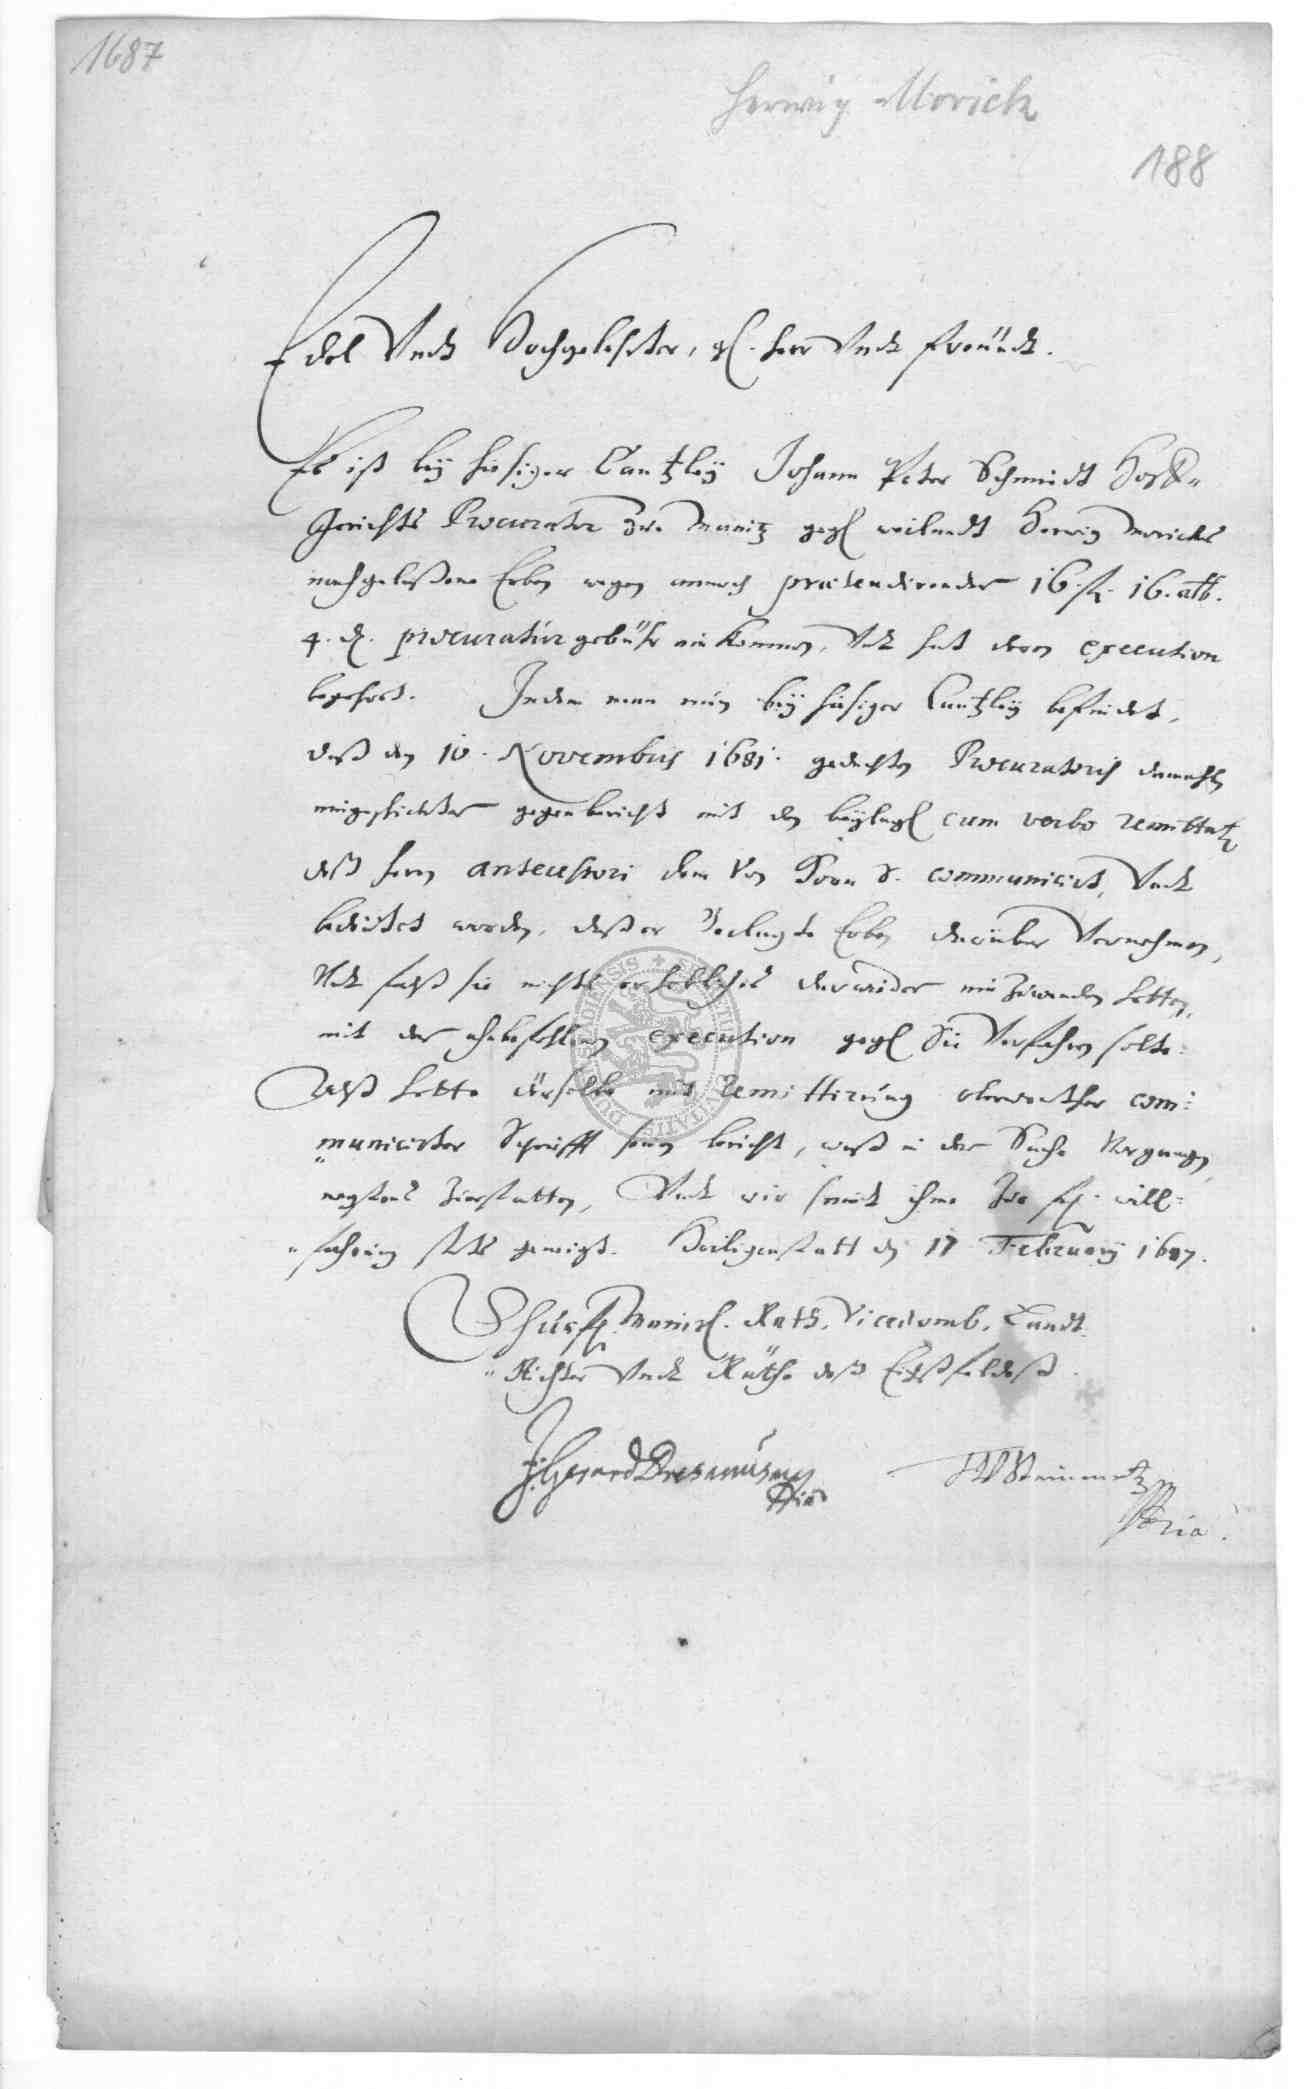 1687
Herwig Morick
188
Edel Undt Hochgelehrter, gl. Herr Undt freundt.
Es ist bey hiesiger Cantzley Johann Peter Schmidt Hoff-
Gerichts Procurator zue Maintz gegen weilandt Herwig Moricks
nachgelaßene Erben wegen annoch praetendirender 16. fl. 16. alb.
4. d. procuratur gebühr einkommen, Undt hat deren execution
begehret. Indem man nun bey hiesiger Cantzley befindet,
daß den 10. Novembris 1681. gedachten Procuratoris damahls
eingeschickter gegenbericht mit den beylagen cum verbo remittatur
deß Herrn antecessori dem Von Horn S. communicirt, Undt
bedeutet worden, daß er Beclagte Erben darüber Vernehmen,
Undt falß sie nichts erhebliches darwieder einzuwenden hetten,
mit der anbefohlenen execution gegen Sie Verfahren solte:
Alß hette derselbe mit Remittirung oberwenther com-
municirter Schrifft seinen bericht, waß in der Sache Vorgangen,
negstens zuerstatten, Undt wir seindt ihme zue will-
fahrung stets geneigt. Heiligenstatt den 17 February 1687.
Churfl. Maintzl. Rath, Vicedomb, Landt-
Richter Undt Räthe deß Eichßfeldeß